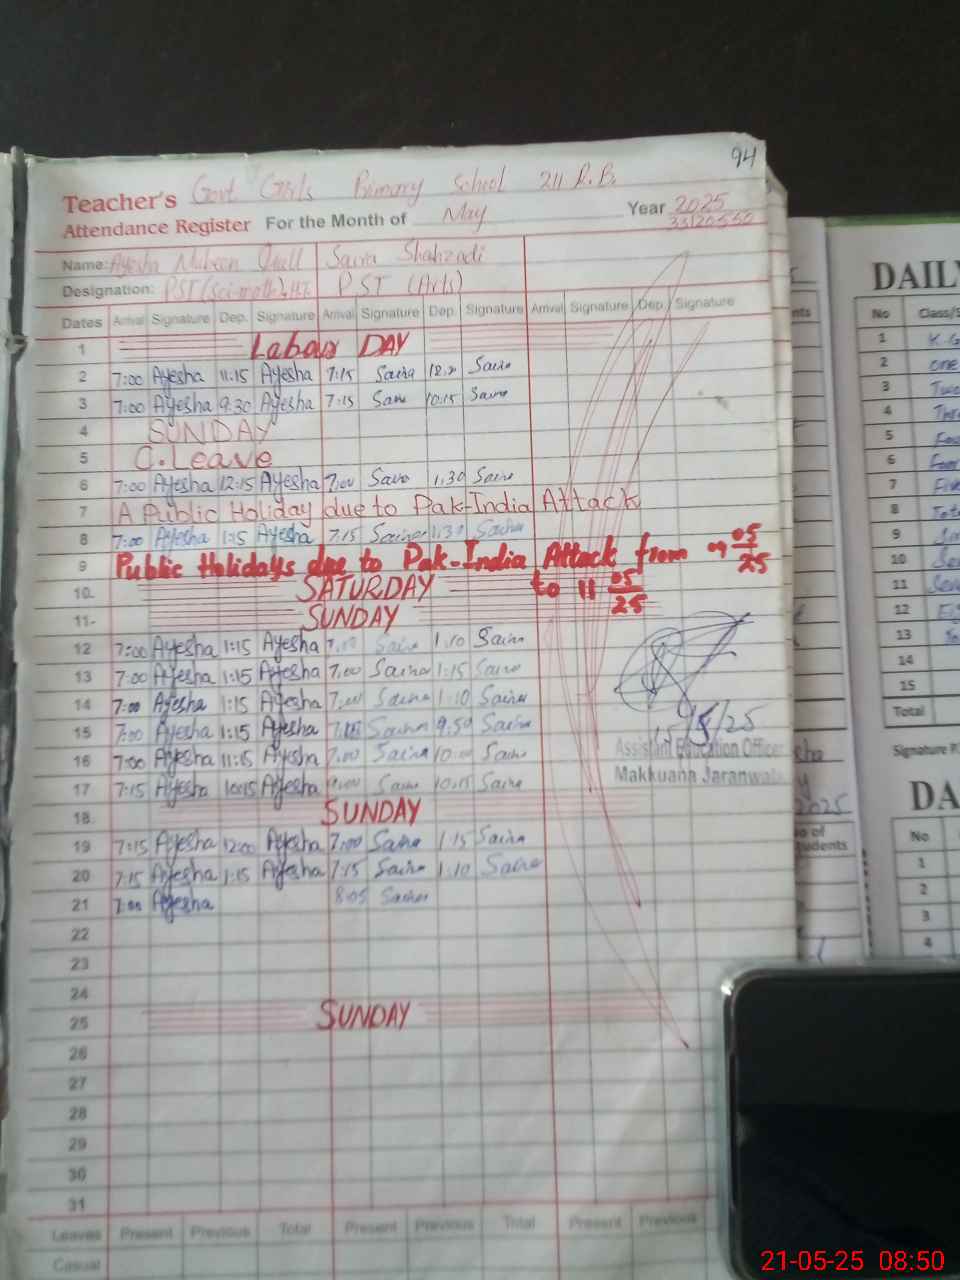 94
Teacher's Govt Girls Primary School 211 R.B.
Attendance Register For the Month of May Year 2025
33120550
Name: Ayesha Saira Shahzadi
Designation: PST PST (Arts)
Dates Arrival Signature Dep. Signature Arrival Signature Dep. Signature Arrival Signature Dep. Signature
1 Labour DAY
2 7:00 Ayesha 11:15 Ayesha 7:15 Saira Saira
3 7:00 Ayesha 9:30 Ayesha 7:15 10:15
4 SUNDAY
5 C.Leave
6 7:00 Ayesha 12:15 Ayesha 7:00 1:30
7 A Public Holiday due to Pak-India Attack
8 7:00 Ayesha 1:15 Ayesha 7:15 Saira 1:30 Saira
9 Public Holidays due to Pak-India Attack from 09 05/25
10. SATURDAY to 11 05/25
11- SUNDAY
12 7:00 Ayesha 1:15 Ayesha Saira 1:10 Saira
13 7:00 Ayesha 1:15 Ayesha 7:00 Saira 1:15 Saira
14 7:00 Ayesha 1:15 Ayesha 7:00 Saira 1:10 Saira
15 7:00 Ayesha 1:15 Ayesha Saira 9:50 Saira
16 7:00 Ayesha 11:15 Ayesha 7:00 Saira 10:00 Saira
17 7:15 Ayesha 10:15 Ayesha Saira 10:05 Saira
18. SUNDAY
19 7:15 Ayesha 12:00 Ayesha 7:00 Saira 1:15 Saira
20 7:15 Ayesha 1:15 Ayesha 7:15 Saira 1:10 Saira
21 7:00 Ayesha 8:05 Saira
22
23
24
25 SUNDAY
26
27
28
29
30
31
Leaves Present Previous Total Present Previous Total Present Previous
Casual
15/5/25
Assistant Education Officer
Makkuana Jaranwala
2025
DAILY
No Class/S
1 K.G
2 one
3 Two
4
5
6
7 Five
8
9
10
11
12
13
14
15
Total
Signature
DA
No Class
1
2
3
4
21-05-25 08:50